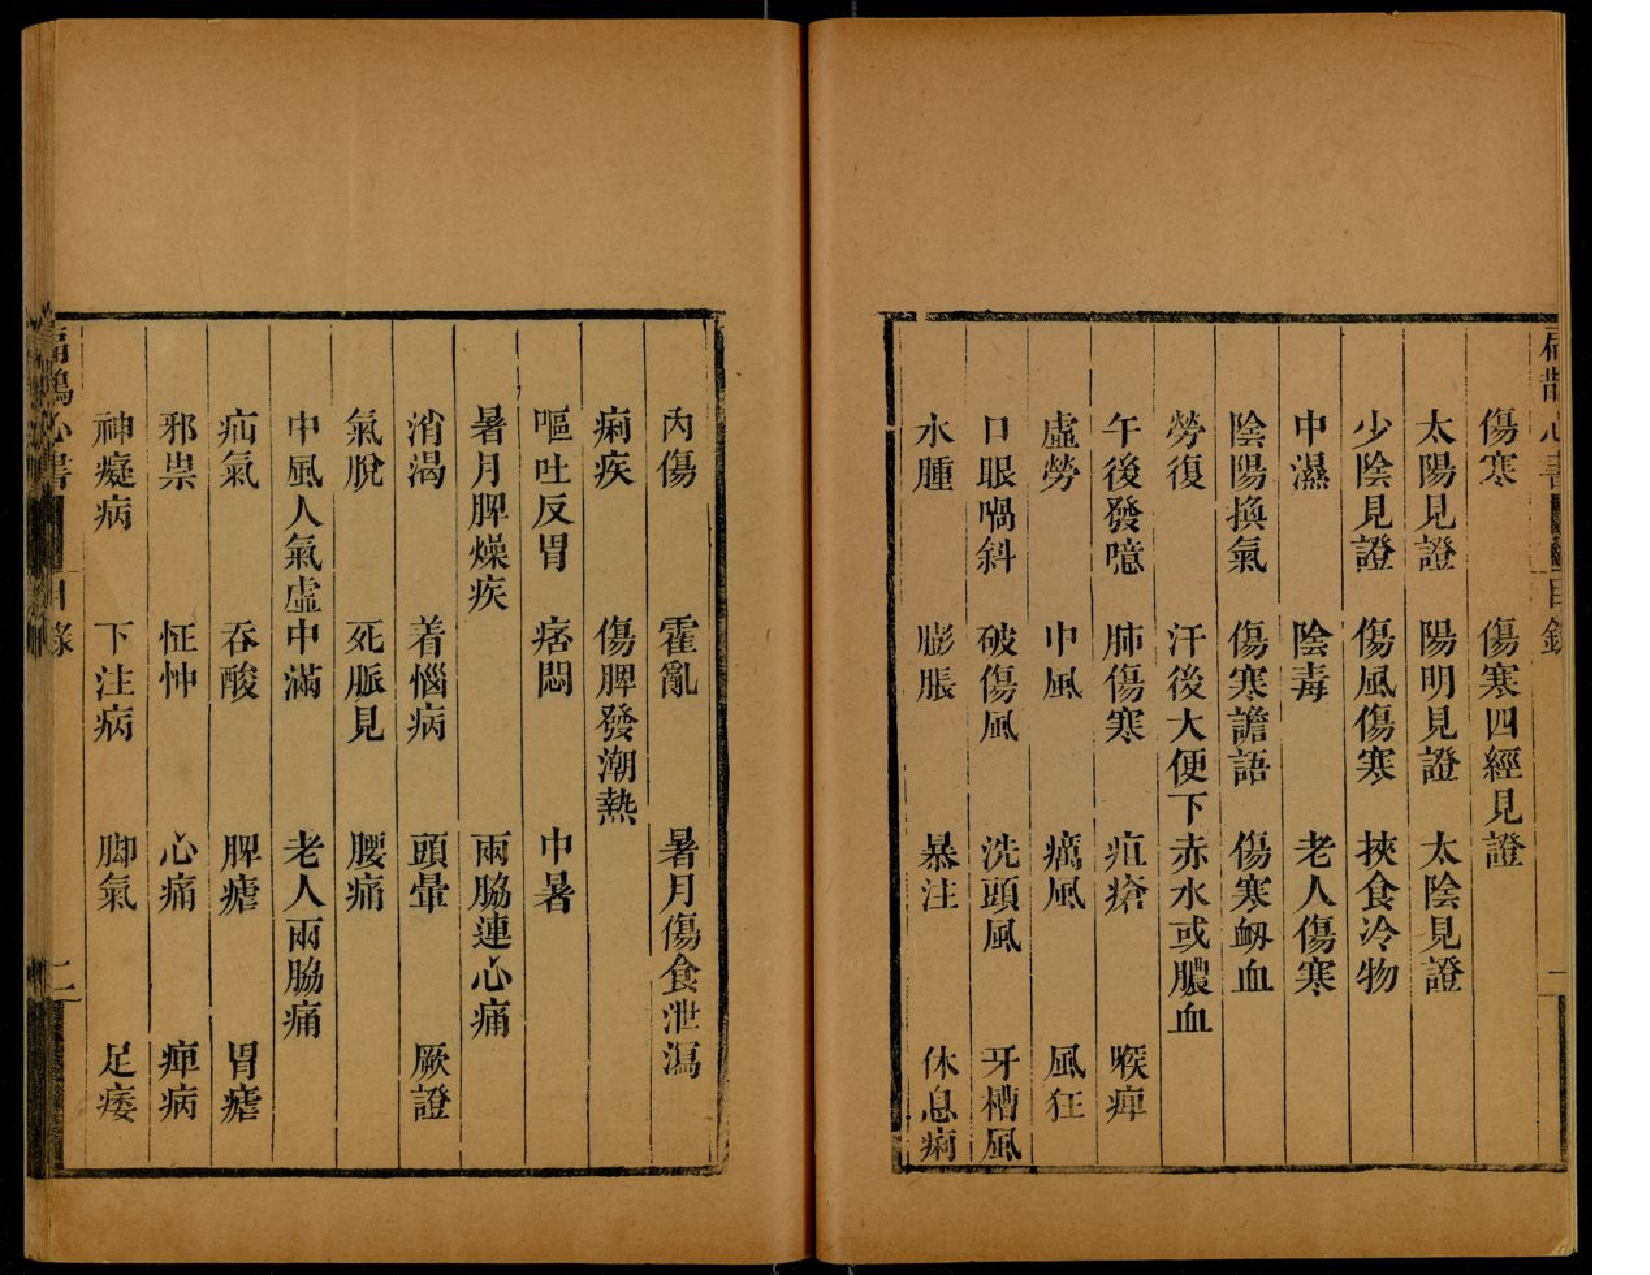 扁鵲心書 目錄 一
傷寒 傷寒四經見證
太陽見證 陽明見證 太陰見證
少陰見證 傷風傷寒 挾食冷物
中濕 陰毒 老人傷寒
陰陽換氣 傷寒譫語 傷寒衂血
勞復 汗後大便下赤水或膿血
午後發噫 肺傷寒 疽瘡 喉痺
虛勞 中風 癘風 風狂
口眼喎斜 破傷風 洗頭風 牙槽風
水腫 膨脹 暴注 休息痢
內傷 霍亂 暑月傷食泄瀉
痢疾 傷脾發潮熱
嘔吐反胃 痞悶 中暑
暑月脾燥疾 兩脇連心痛
消渴 着惱病 頭暈 厥證
氣脫 死脈見 腰痛
中風人氣虛中滿 老人兩脇痛
疝氣 吞酸 脾瘧 胃瘧
邪祟 怔忡 心痛 痺病
神癡病 下注病 脚氣 足痿
扁鵲心書 目錄 二